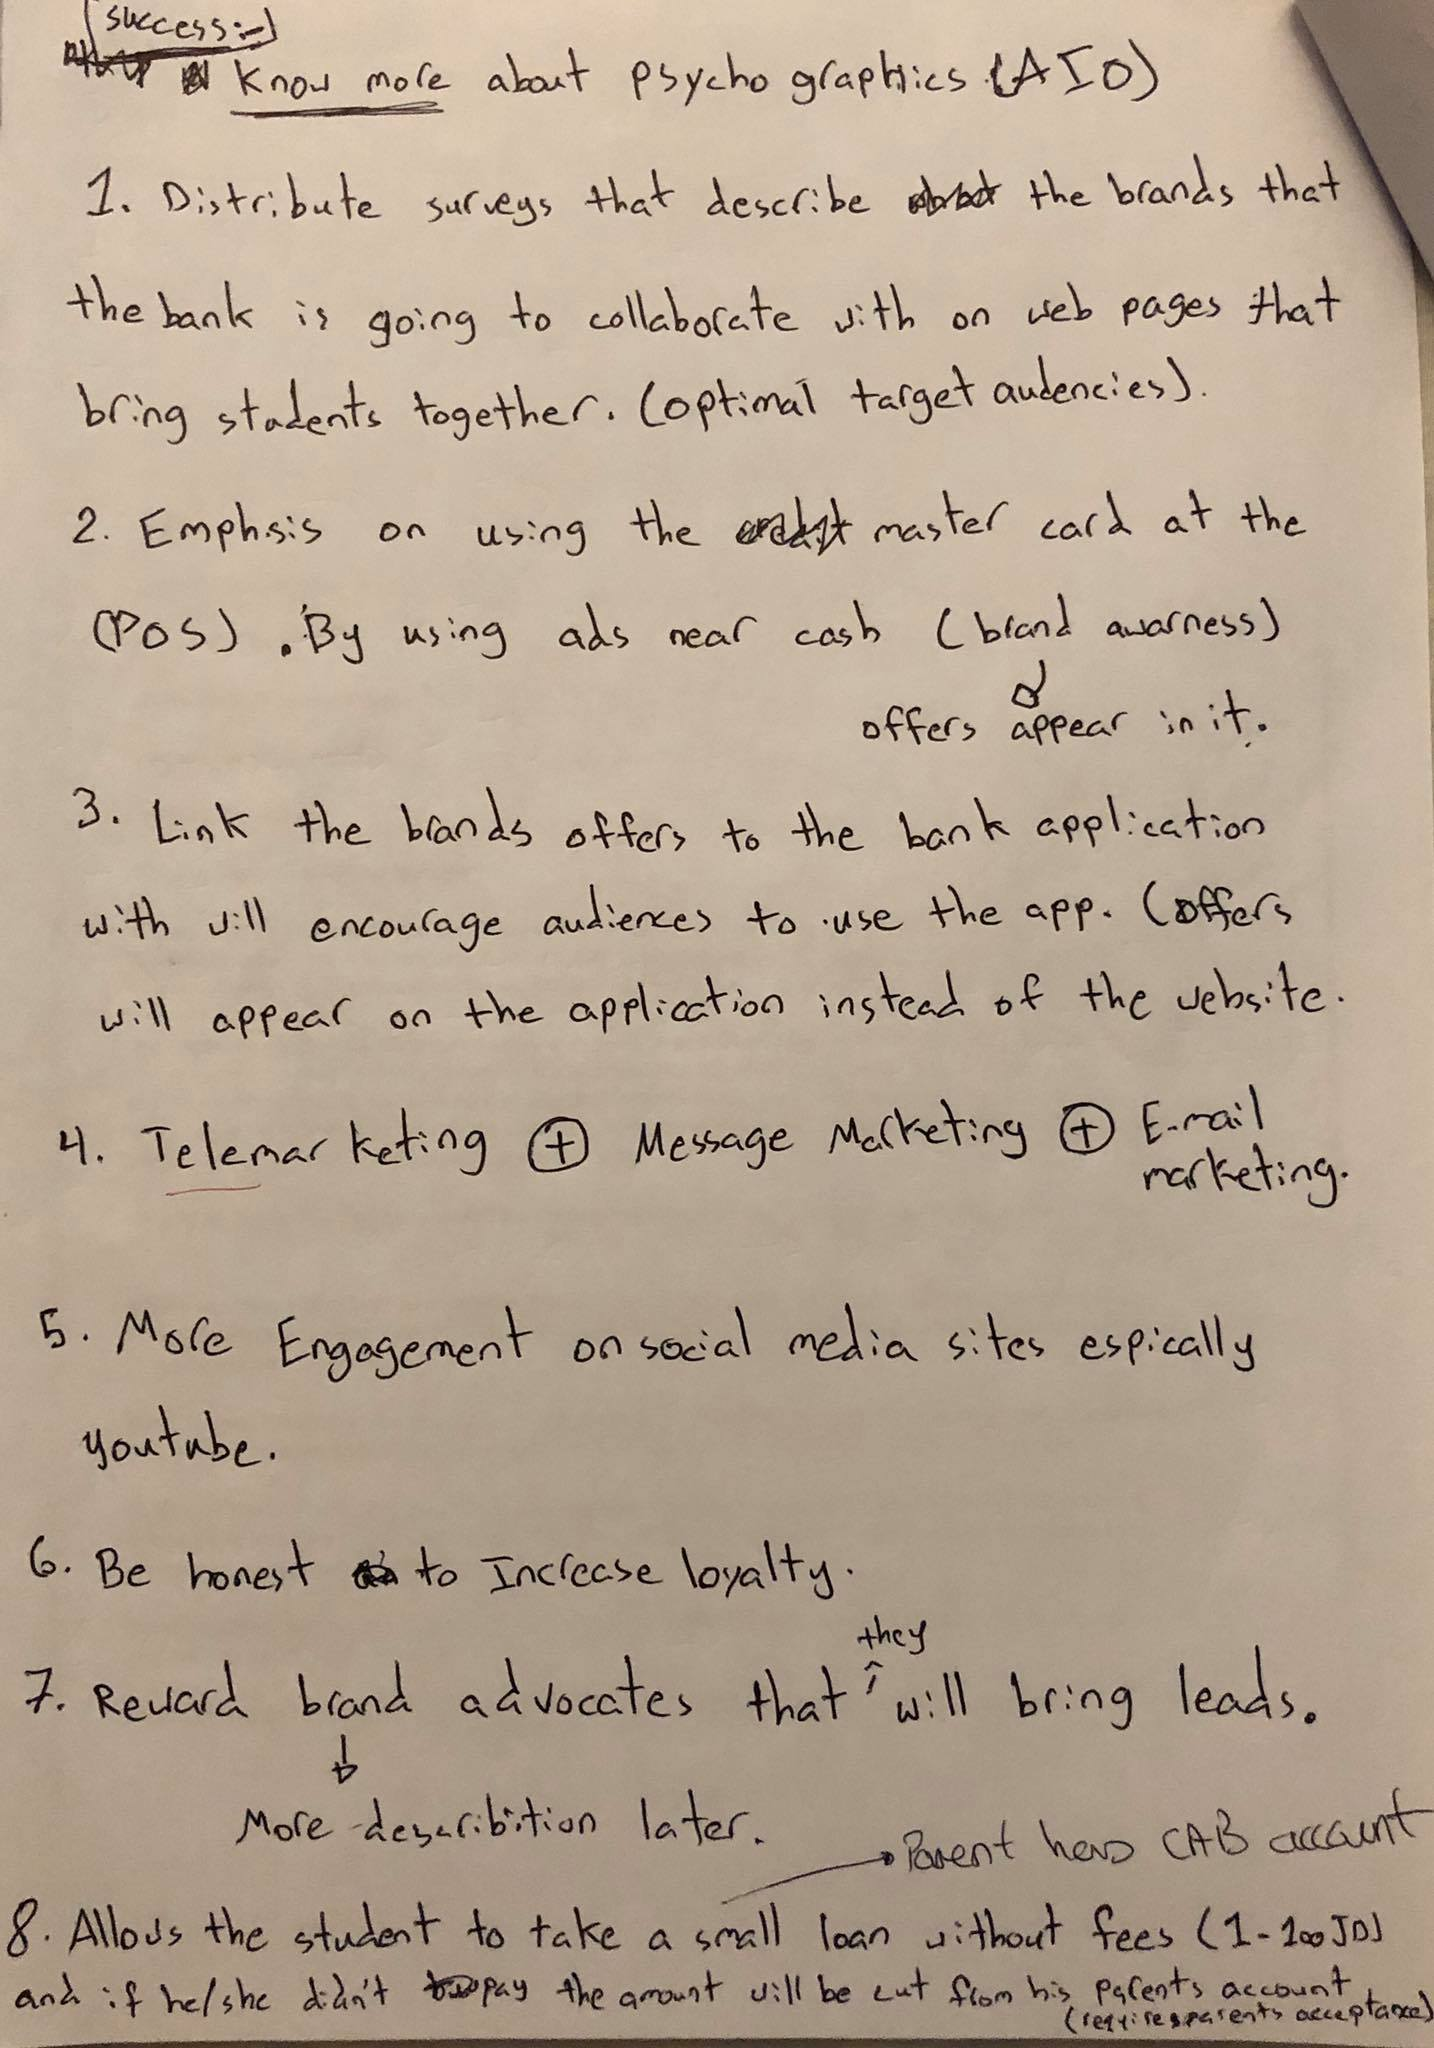 success:-
Know more about psychographics (AIO)
1. Distribute surveys that describe the brands that
the bank is going to collaborate with on web pages that
bring students together. (optimal target audencies).
2. Emphsis on using the master card at the
(POS). By using ads near cash (brand awarness)
offers appear in it.
3. Link the brands offers to the bank application
with will encourage audiences to use the app. (offers
will appear on the application instead of the website.
4. Telemarketing + Message Marketing + E-mail
marketing.
5. More Engagement on social media sites espically
youtube.
6. Be honest to Increase loyalty.
they
7. Reward brand advocates that will bring leads.
More describition later.
Parent has CAB account
8. Allows the student to take a small loan without fees (1-100JD)
and if he/she didn't pay the amount will be cut from his parents account
(requires parents acceptance)